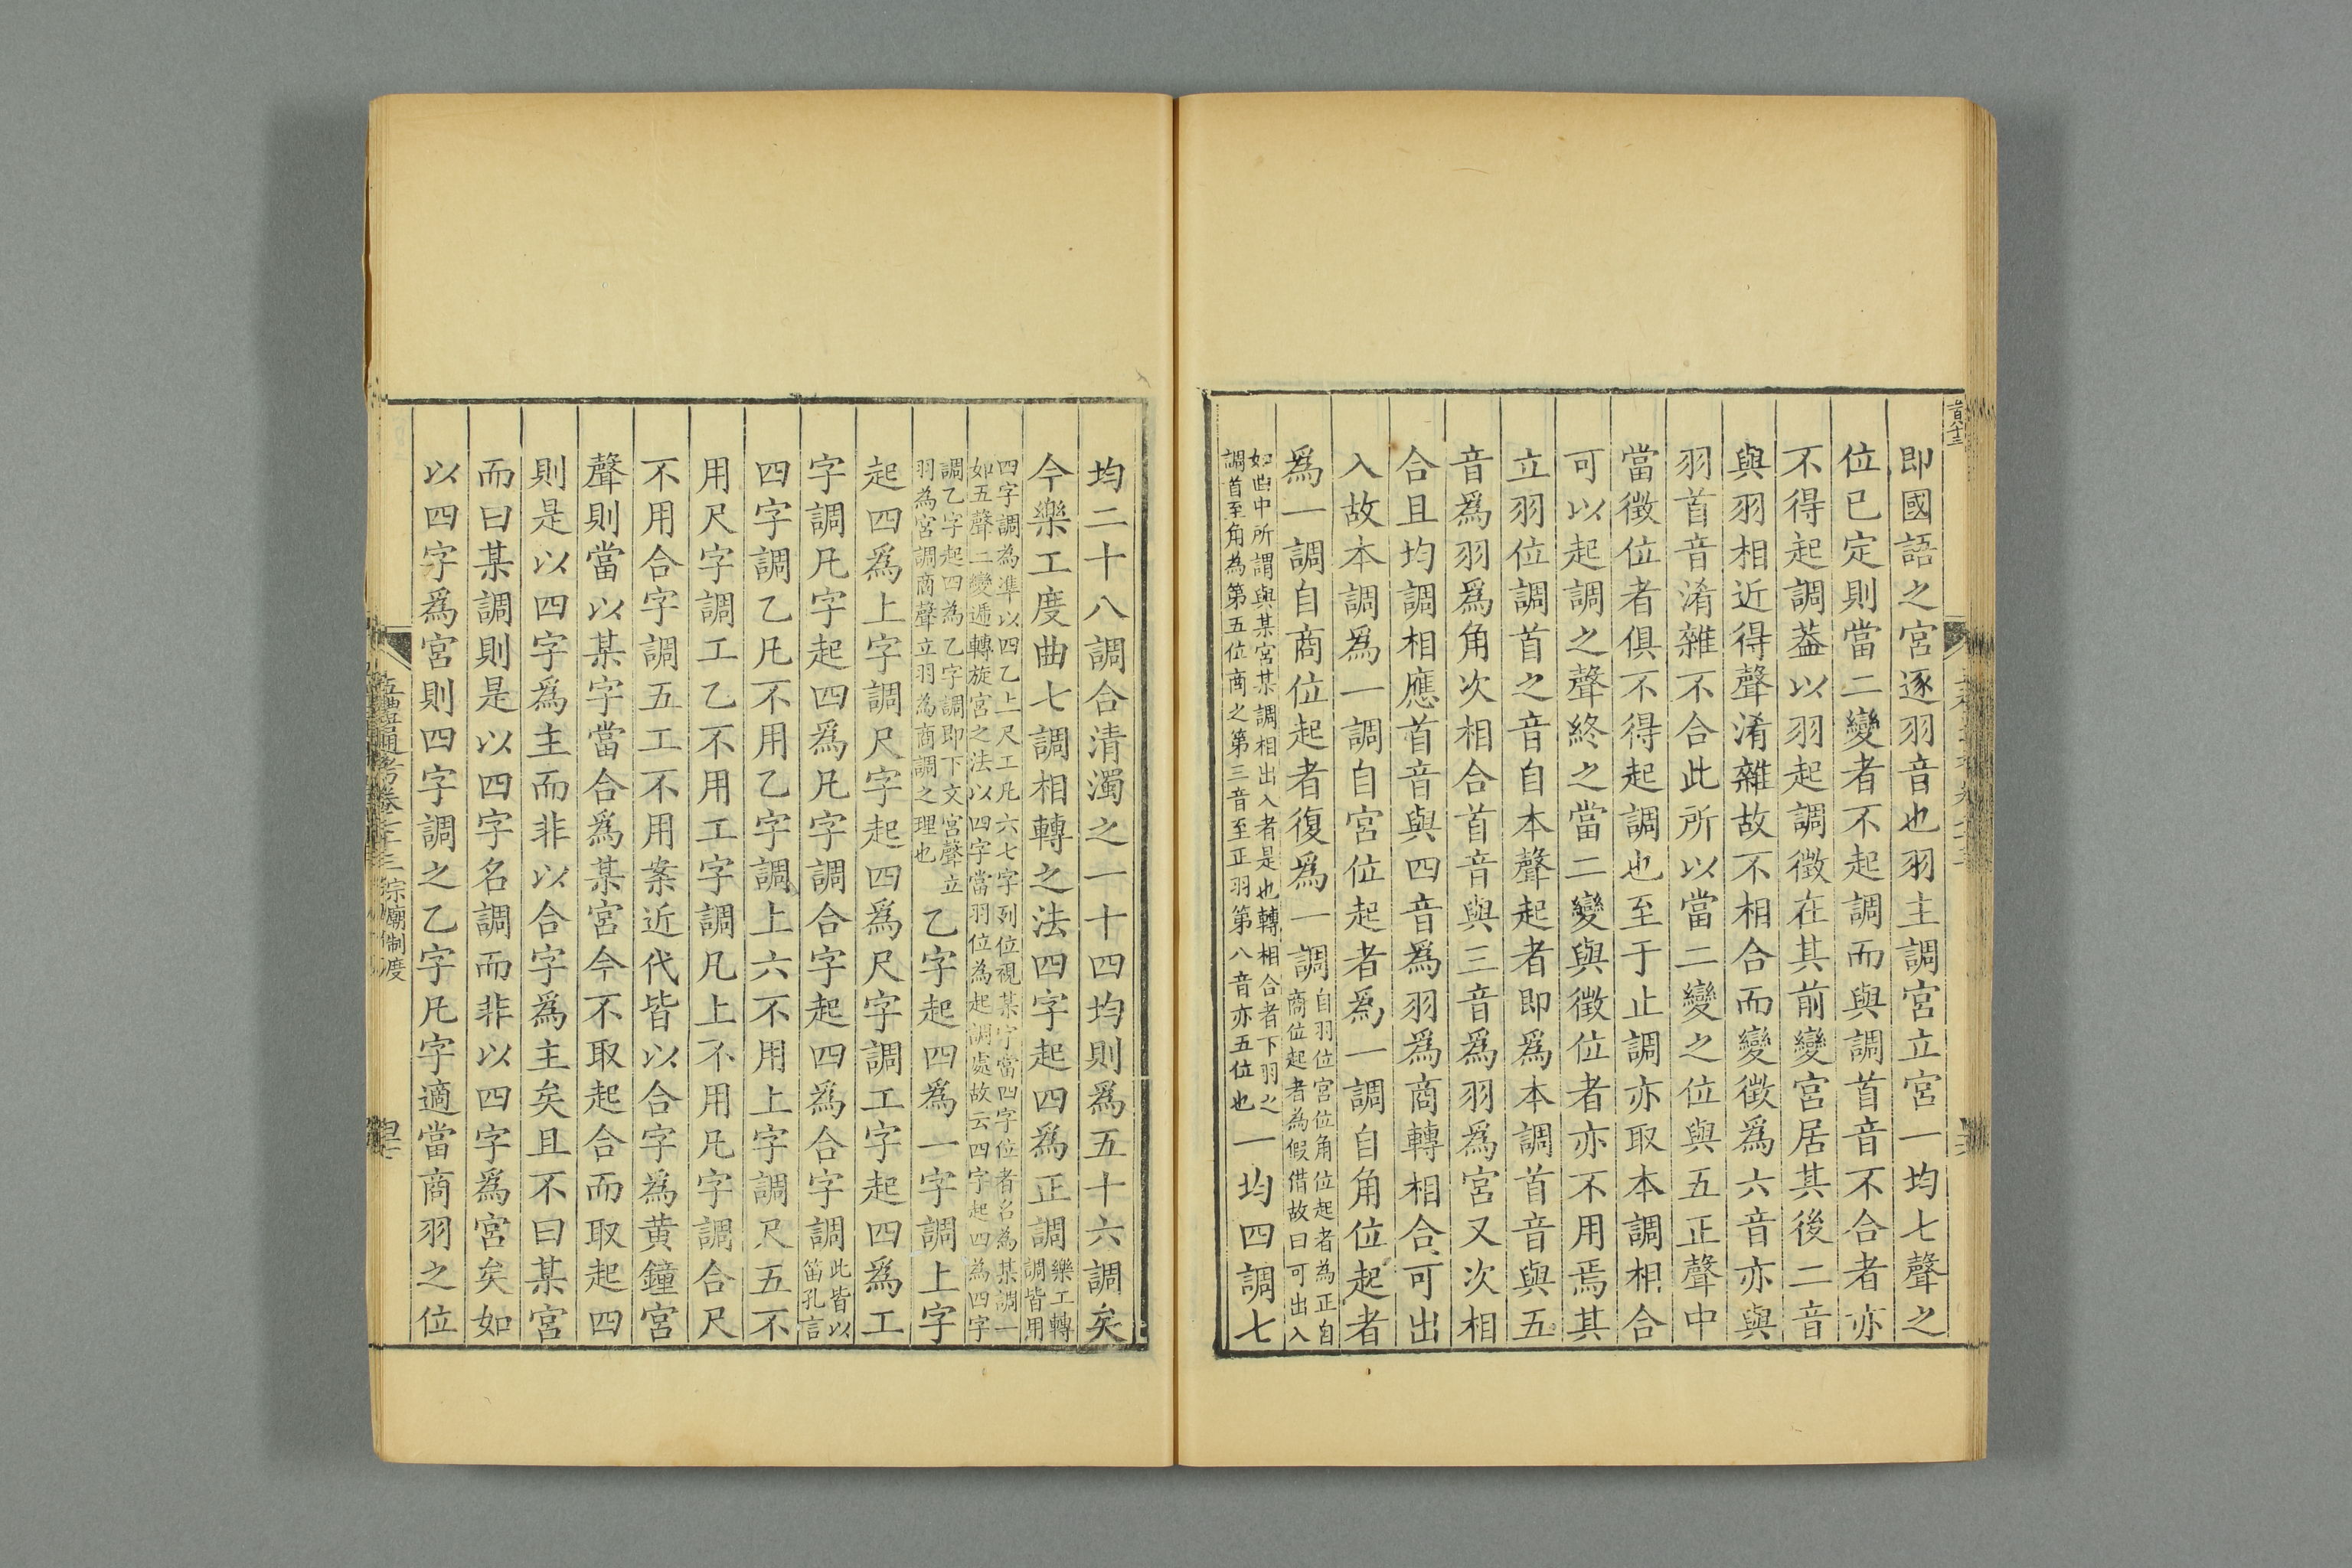 即國語之宮逐羽音也羽主調宮立宮一均七聲之
位已定則當二變者不起調而與調首音不合者亦
不得起調葢以羽起調徵在其前變宮居其後二音
與羽相近得聲淆雜故不相合而變徵爲六音亦與
羽首音淆雜不合此所以當二變之位與五正聲中
當徵位者俱不得起調也至于止調亦取本調相合
可以起調之聲終之當二變與徵位者亦不用焉其
立羽位調首之音自本聲起者即爲本調首音與五
音爲羽爲角次相合首音與三音爲羽爲宮又次相
合且均調相應首音與四音爲羽爲商轉相合可出
入故本調爲一調自宮位起者爲一調自角位起者
爲一調自商位起者復爲一調自羽位宮位角位起者為正自
商位起者為假借故曰可出入
如曲中所謂與某宮某調相出入者是也轉相合者下羽之
調首至角為第五位商之第三音至正羽第八音亦五位也一均四調七
均二十八調合清濁之一十四均則爲五十六調矣
今樂工度曲七調相轉之法四字起四爲正調樂工轉
調皆用
四字調為準以四乙上尺工凡六七字列位視某字當四字位者名為某調一
如五聲二變遞轉旋宮之法以四字當羽位為起調處故云四字起四為四字
調乙字起四為乙字調即下文宮聲立
羽為宮調商聲立羽為商調之理也乙字起四爲一字調上字
起四爲上字調尺字起四爲尺字調工字起四爲工
字調凡字起四爲凡字調合字起四爲合字調此皆以
笛孔言
四字調乙凡不用乙字調上六不用上字調尺五不
用尺字調工乙不用工字調凡上不用凡字調合尺
不用合字調五工不用案近代皆以合字爲黄鐘宮
聲則當以某字當合爲某宮今不取起合而取起四
則是以四字爲主而非以合字爲主矣且不曰某宮
而曰某調則是以四字名調而非以四字爲宮矣如
以四字爲宮則四字調之乙字凡字適當商羽之位
宗廟制度